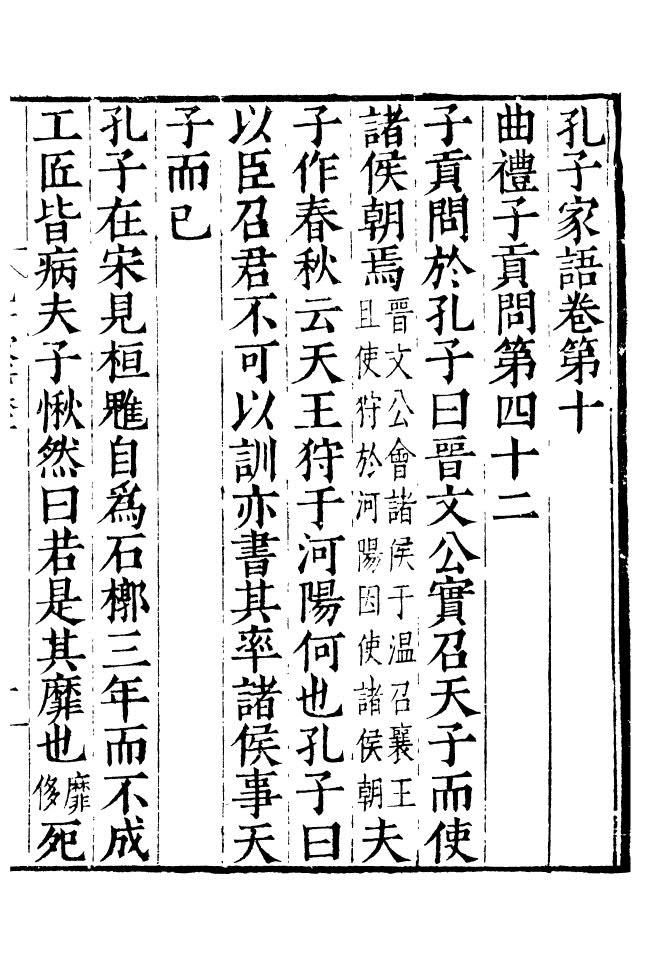 孔子家語卷第十
曲禮子貢問第四十二
子貢問於孔子曰晉文公實召天子而使
諸侯朝焉晉文公會諸侯于温召襄王且使狩於河陽因使諸侯朝夫
子作春秋云天王狩于河陽何也孔子曰
以臣召君不可以訓亦書其率諸侯事天
子而已
孔子在宋見桓魋自爲石槨三年而不成
工匠皆病夫子愀然曰若是其靡也靡侈死